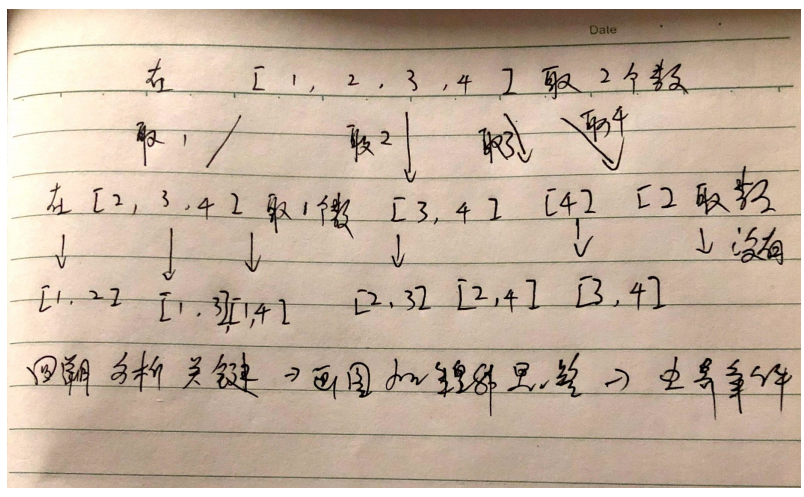 Date
在 [1, 2, 3, 4] 取 2个数
取1 取2 取3 取4
在 [2, 3, 4] 取1个数 [3, 4] [4] [] 取数
没有
[1, 2] [1, 3] [1, 4] [2, 3] [2, 4] [3, 4]
回溯 分析 关键 → 画图 思路 → 条件